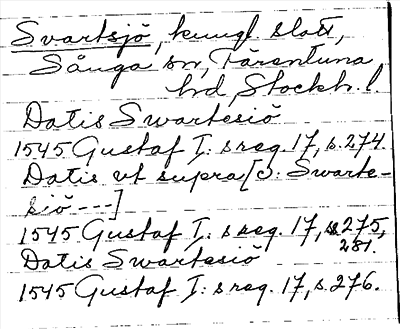 Svartsjö, kungl. slott,
Sånga sn, Färentuna
hd, Stockh. l.
Datis Swartesiö
1545 Gustaf I: s reg. 17, s. 274.
Datis vt supra [ɔ: Swarte-
siö ---]
1545 Gustaf I: s reg. 17, s. 275,
281.
Datis Swartesiö
1545 Gustaf I: s reg. 17, s. 276.